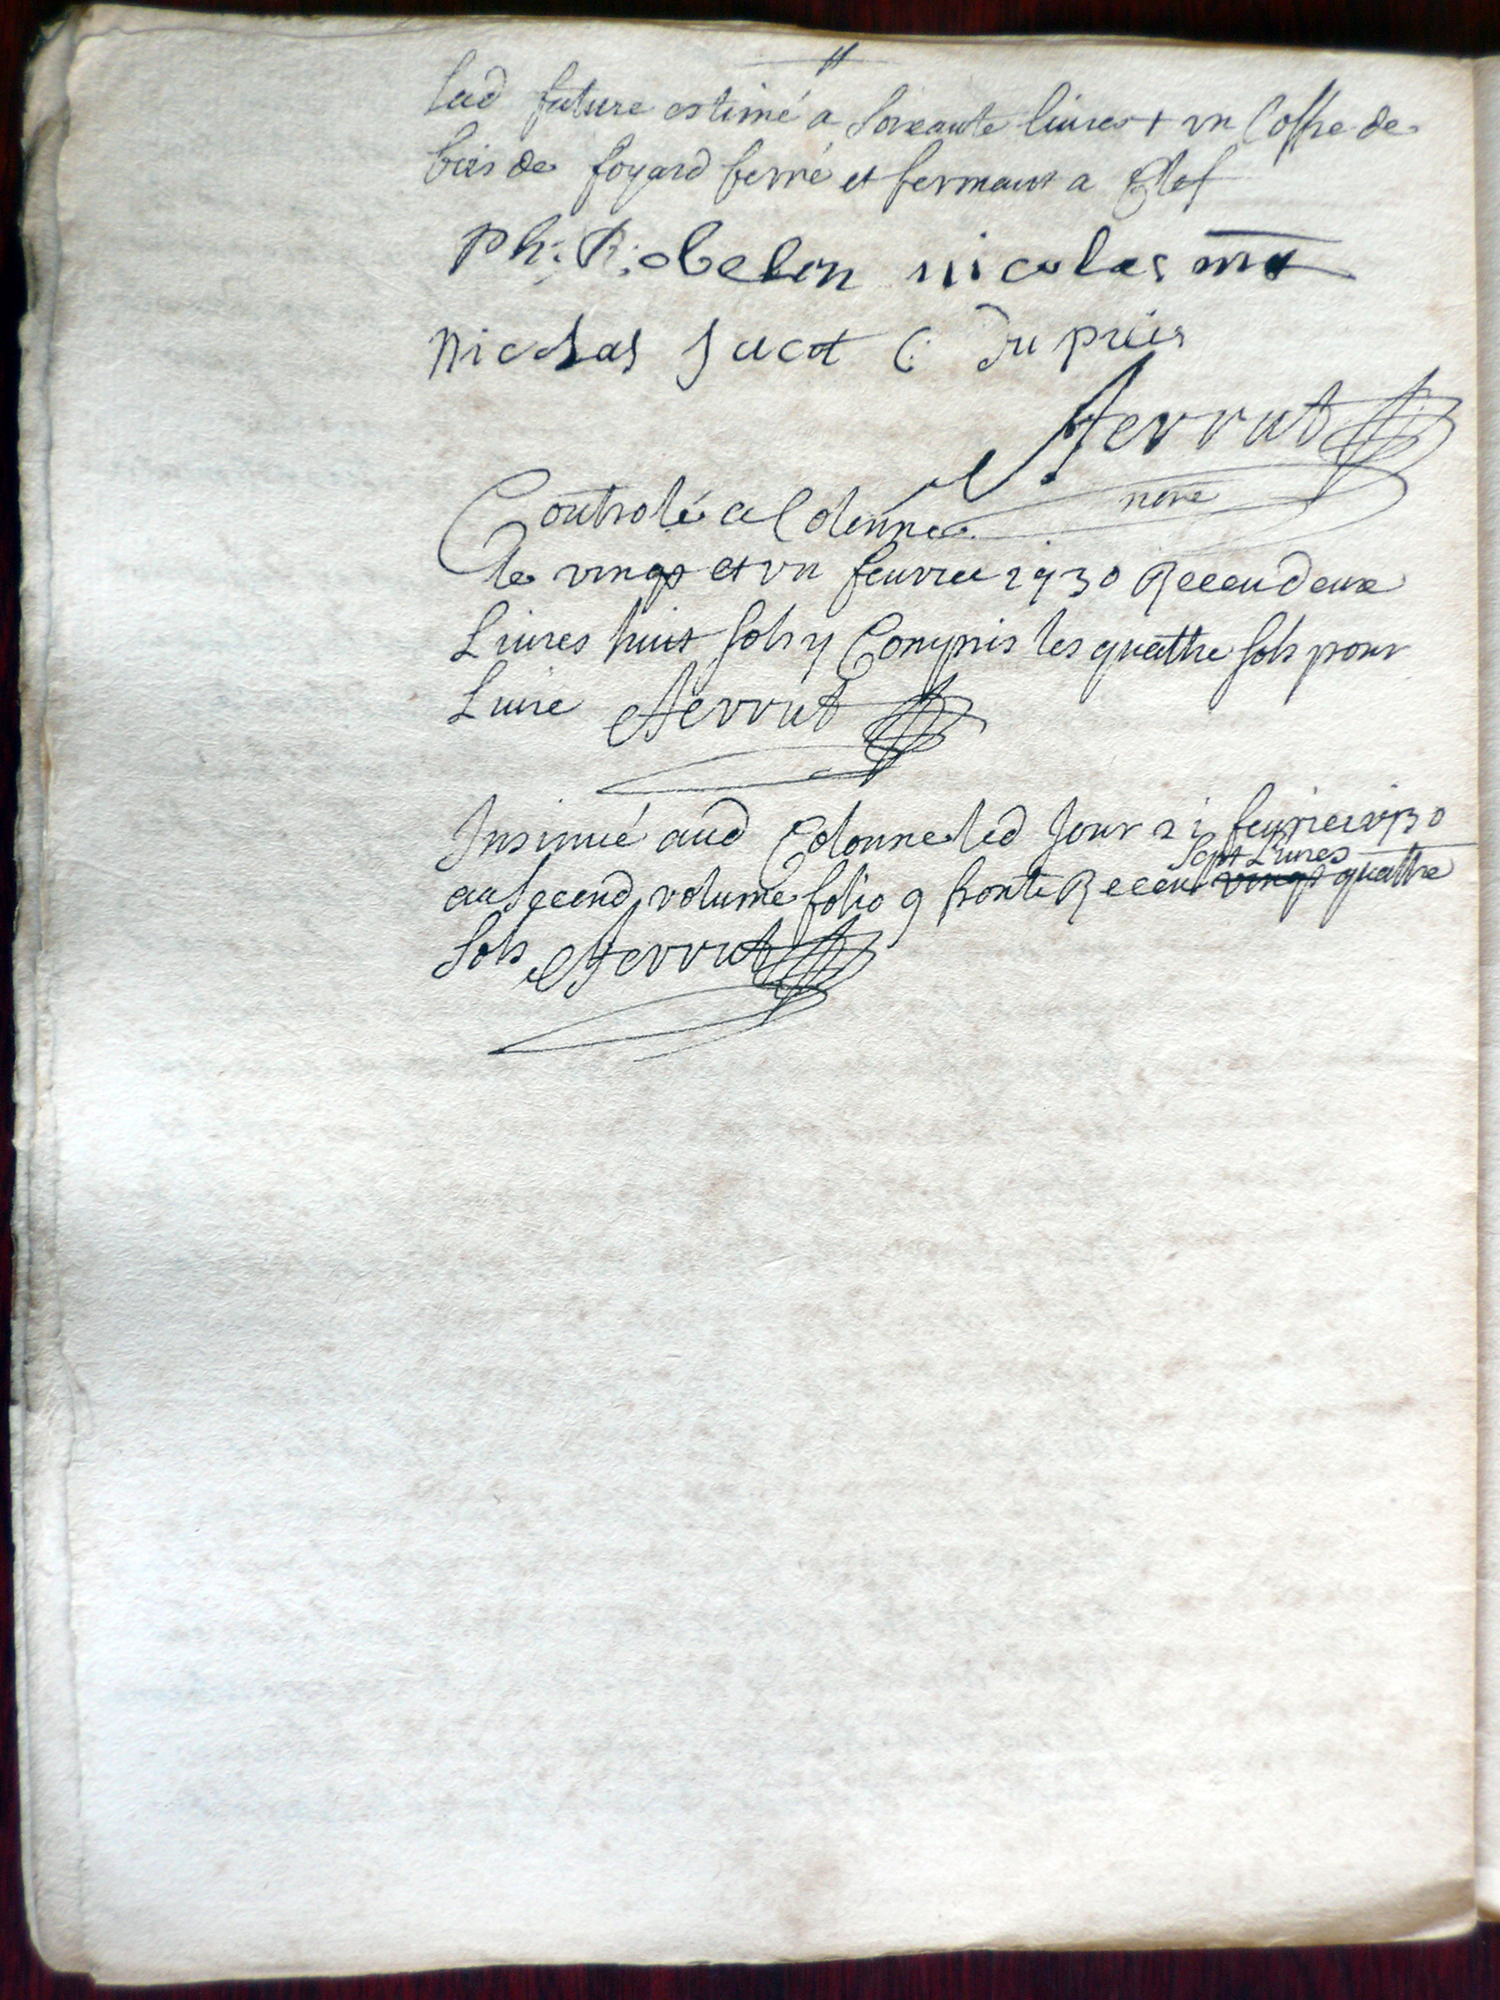 lad future estimé a soixante livres + un Coffre de
bois de foyard ferré et fermant a Clef
Ph: R: obelon nicolas
nicolas Jacot C: Du prés
Aerrut
nore
Controlé a Colonne
le vingt et un feuvrier 1730 Receu deux
Livres huit sols y Compris les quattre sols pour
Livre Aerrut
Insinué aud Colonne led Jour 21 feuvrier 1730
Sept Livres
au second volume folio 9 fronte Receu vingt quattre
sols Aerrut